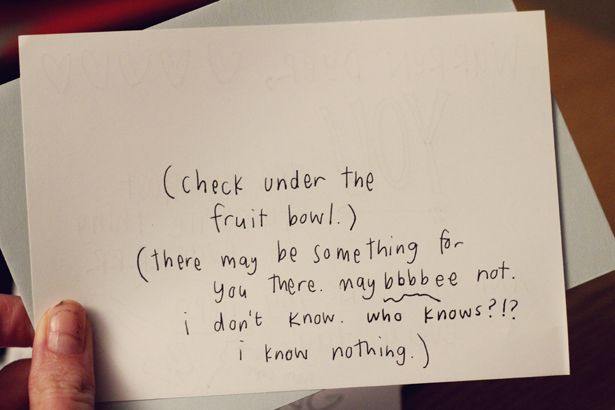 (check under the
fruit bowl.)
(there may be something for
you there. maybbbbee not.
i don't know. who knows?!?
i know nothing.)
YOU